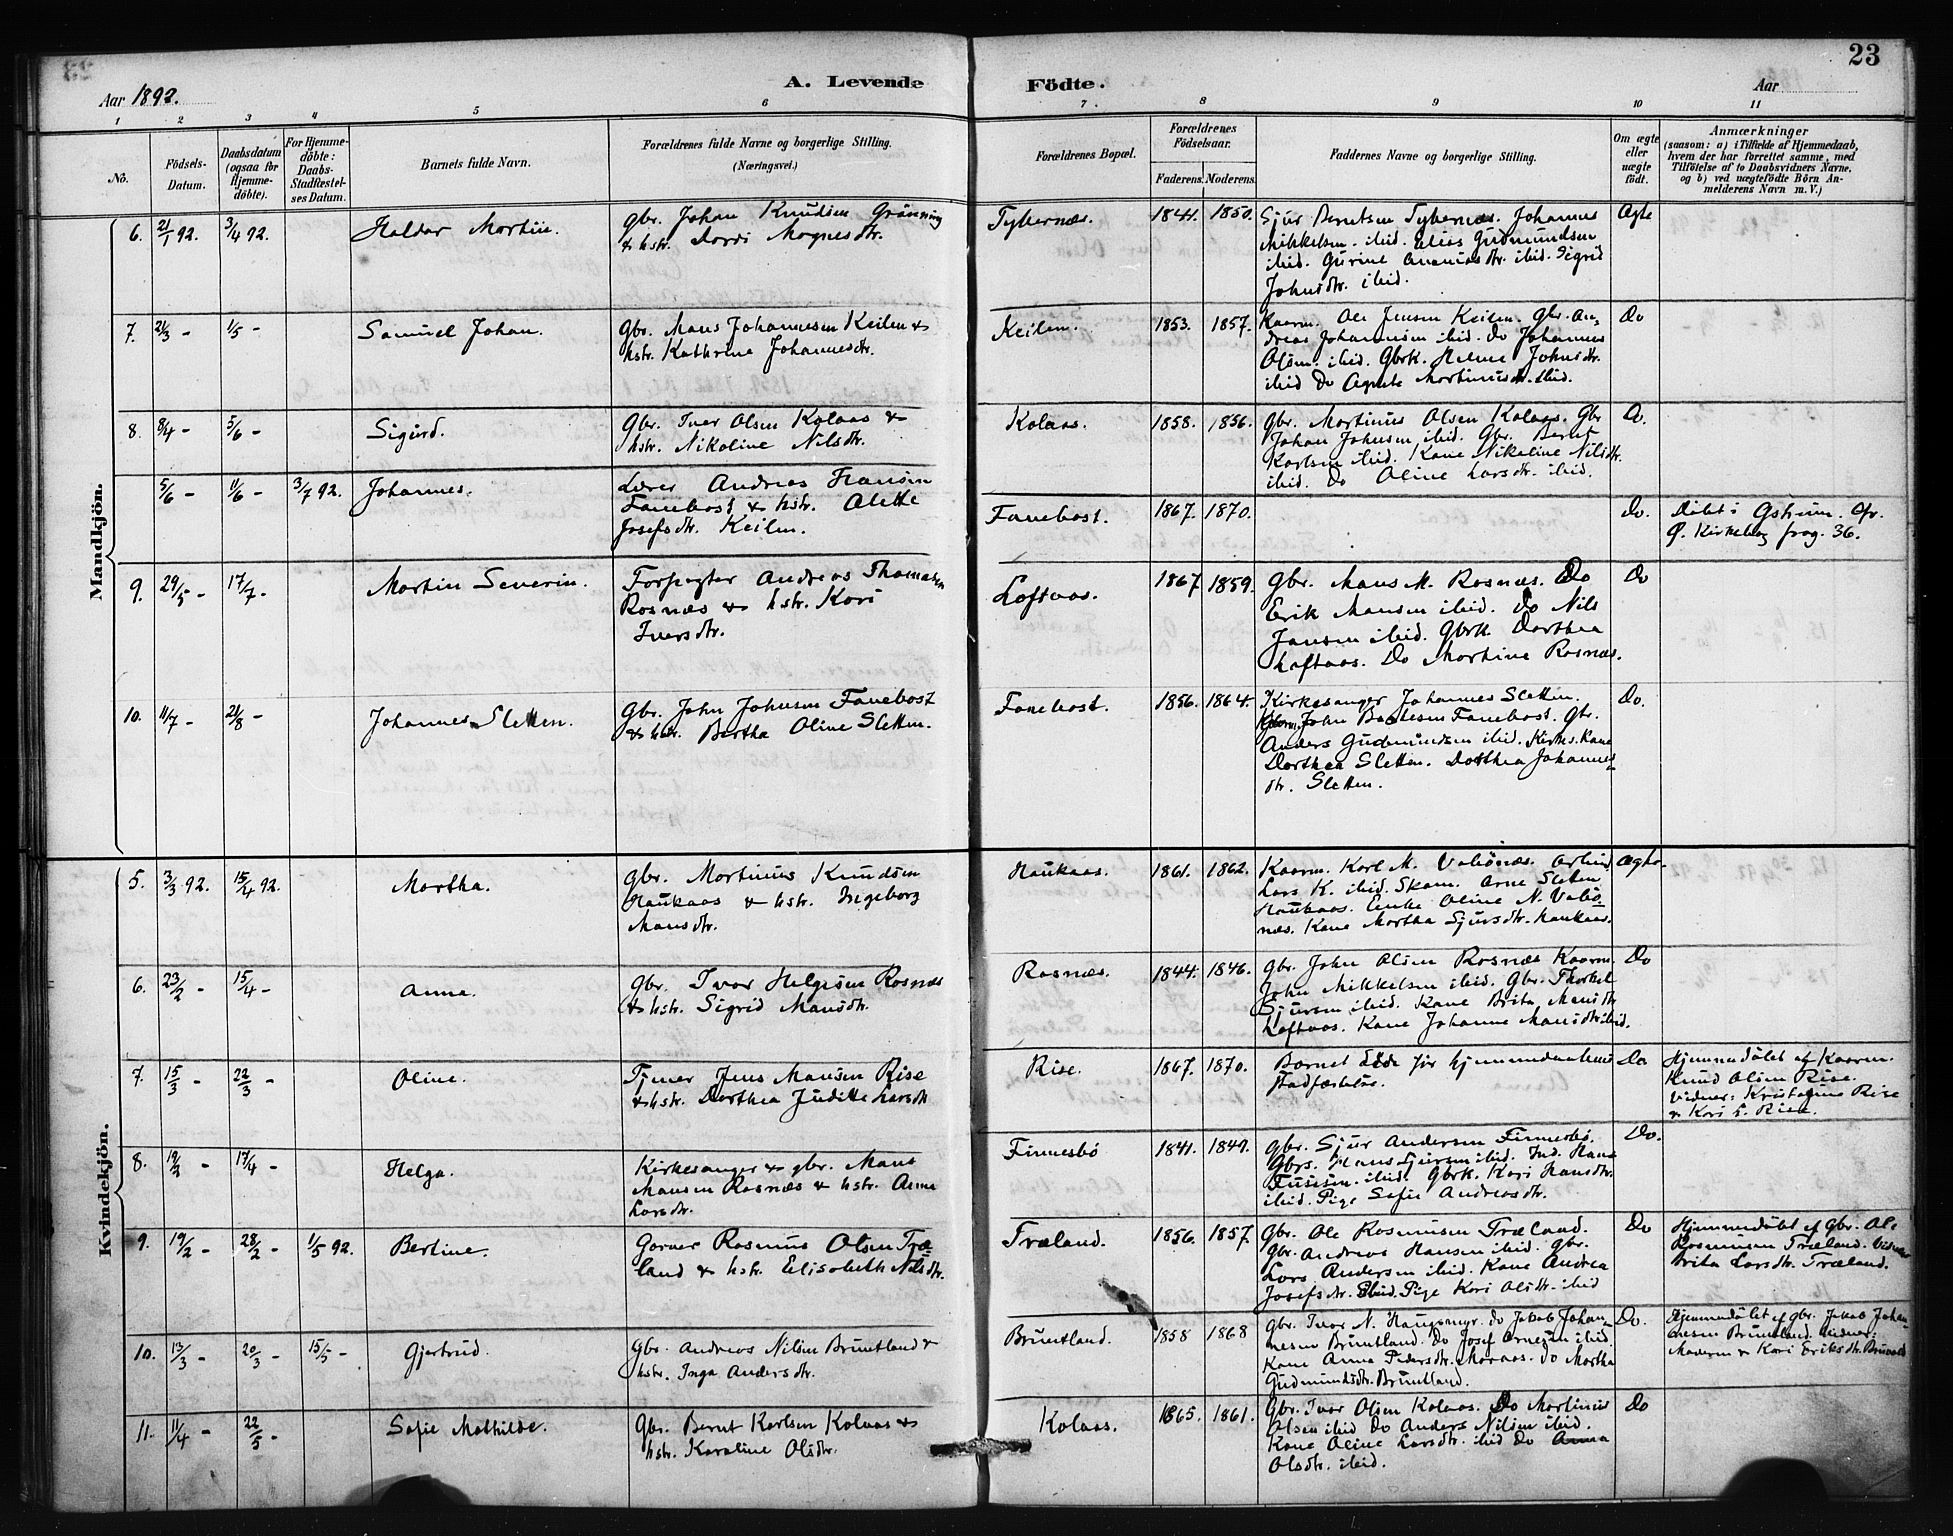 23
Aar 1892.
A. Levende Födte.
Aar
1 2 3 4 5 6 7 8 9 10 11
No.
Födsels-Datum.
Daabsdatum (ogsaa for Hjemme-döbte).
For Hjemme-döbte: Daabs-Stadfæstel-ses Datum.
Barnets fulde Navn.
Forældrenes fulde Navne og borgerlige Stilling.
(Næringsvei.)
Forældrenes Bopæl.
Forældrenes Födselsaar.
Faderens. Moderens.
Faddernes Navne og borgerlige Stilling.
Om ægte eller uægte födt.
Anmærkninger
(saasom: a) i Tilfælde af Hjemmedaab,
hvem der har forrettet samme, med
Tilföielse af to Daabsvidners Navne,
og b) ved uægtefödte Börn An-
melderens Navn m. V.)
Mandkjön.
6. 21/1 92. 3/4 92.
Haldor Martin.
Gbr. Johan Knudsen Grönning
& hstr. Dordi Mognesdtr.
Tybernæs.
1841. 1850.
Sjur Berntsen Tybernæs. Johannes
Mikkelsen ibid. Elias Gudmundsen
ibid. Gurine Ananiasdtr. ibid. Sigrid
Johnsdtr. ibid.
Ægte
7. 21/3 - 1/5 -
Samuel Johan.
Gbr. Mans Johannesen Keilen &
hstr. Kathrine Johannesdtr.
Keilen.
1853. 1857.
Kaarm. Ole Jensen Keilen. Gbr. An-
dreas Johannesen ibid. Do Johannes
Olsen ibid. Gbrk. Helene Johnsdtr.
ibid Do Agnete Martinusdtr. ibid.
Do
8. 8/4 - 5/6 -
Sigurd.
Gbr. Iver Olsen Kolaas &
hstr. Nikoline Nilsdtr.
Kolaas.
1858. 1856.
Gbr. Martinus Olsen Kolaas. Gbr
Johan Johnsen ibid. Gbr. Bernt
Karlsen ibid. Kone Nikoline Nilsdtr.
ibid. Do Oline Larsdtr. ibid.
Do.
5/6 - 11/6 - 3/7 92.
Johannes.
Lærer Andreas Hansen
Fanebost & hstr. Alette
Josefsdtr. Keilen.
Fanebost.
1867. 1870.
Do.
Döbt i Gstrum. Cfr.
Ø. Kirkebog pag. 36.
9. 29/5 - 17/7 -
Martin Severin.
Forpagter Andreas Thomasen
Rosnæs & hstr. Kari
Iversdtr.
Loftaas.
1867 1859.
Gbr. Mans M. Rosnæs. Do
Erik Mansen ibid. Do Nils
Jansen ibid. Gbrk. Dorthea
Loftaas. Do Martine Rosnæs.
Do
10. 11/7 - 21/8 -
Johannes Sletten.
Gbr. John Johnsen Fanebost
& hstr. Bertha Oline Sletten.
Fanebost.
1856. 1864.
Kirkesanger Johannes Sletten.
John Fanebost. Gbr.
Anders Gudmundsen ibid. Kirkes. kone
Dorthea Sletten. Dorthea Johannes-
dtr. Sletten.
Do.
Kvindekjön.
5. 3/3 92. 15/4 92.
Martha.
Gbr. Martinus Knudsen
Haukaas & hstr. Ingeborg
Mansdtr.
Haukaas.
1861. 1862.
Kaarm. Karl M. Valsönæs. Arbeid
Lars K. ibid. Skom. Arne Sletten
Haukaas. Enke Oline N. Valsö-
næs. Kone Martha Sjursdtr. Haukaas.
Ægte.
6. 23/2 - 15/4 -
Anna.
Gbr. Ivar Helgesen Rosnæs
& hstr. Sigrid Mansdtr.
Rosnæs.
1844. 1846.
Gbr. John Olsen Rosnæs Kaarm.
John Mikkelsen ibid. Gbr. Thorkel
Sjursen ibid. Kone Brita Mansdtr
Loftaas. Kone Johanne Mansdtr ibid.
Do
7. 15/3 - 22/3 -
Oline.
Tjener Jens Mansen Rise
& hstr. Dorthea Juditte Larsdtr
Rise.
1867. 1870.
Barnet døde før hjemmedaabens
Stadfæstelse.
Do
Hjemmedöbt af Kaarm.
Knud Olsen Rise.
Vidner: Kristofine Rise
& Kari L. Rise.
8. 19/2 - 17/4 -
Helga.
Kirkesanger & gbr. Mans
Mansen Rosnæs & hstr. Anna
Larsdtr.
Finnesbö
1841. 1849.
Gbr. Sjur Andersen Finnesbö.
Gbrs. Hans Sjursen ibid. Ind. Hans
ibid. Gbrk. Kari Hansdtr.
ibid. Pige Sofie Andreasdtr.
Do.
9. 19/2 - 28/2 - 1/5 92.
Bertine.
Garver Rasmus Olsen Træ-
land & hstr. Elisabeth Nilsdtr.
Træland.
1856. 1857
Gbr. Ole Rasmusen Træland.
Gbr. Andreas Hansen ibid. Gbr.
Lars Andersen ibid. Kone Andrea
Josefsdtr. ibid. Pige Kari Olsdtr. ibid
Do
Hjemmedöbt af Gbr. Ole
Rasmusen Træland. Vidner
Brita Larsdtr. Træland.
10. 13/3 - 20/3 - 15/5 -
Gjertrud.
Gbr. Andreas Nilsen Bruntland &
hstr. Inga Andersdtr.
Bruntland.
1858 1868
Gbr. Ivar N. Haugsmyr. Do Jakob Johan-
nesen Bruntland. Do Josef Arnesen ibid
Kone Anna Pedersdtr. Moraas. Do Martha
Gudmundsdtr. Bruntland.
Do.
Hjemmedöbt af Gbr. Jakob Johan-
nesen Bruntland. Vidner:
Moderen & Kari Eriksdtr.
11. 11/4 - 22/5 -
Sofie Mathilde.
Gbr. Bernt Karlsen Kolaas &
hstr. Karoline Olsdtr.
Kolaas.
1865. 1861.
Gbr. Ivar Olsen Kolaas. Do Martinus
Olsen ibid Do Anders Nilsen ibid.
Kone Oline Larsdtr. ibid Do Anna
Olsdtr. ibid.
Do